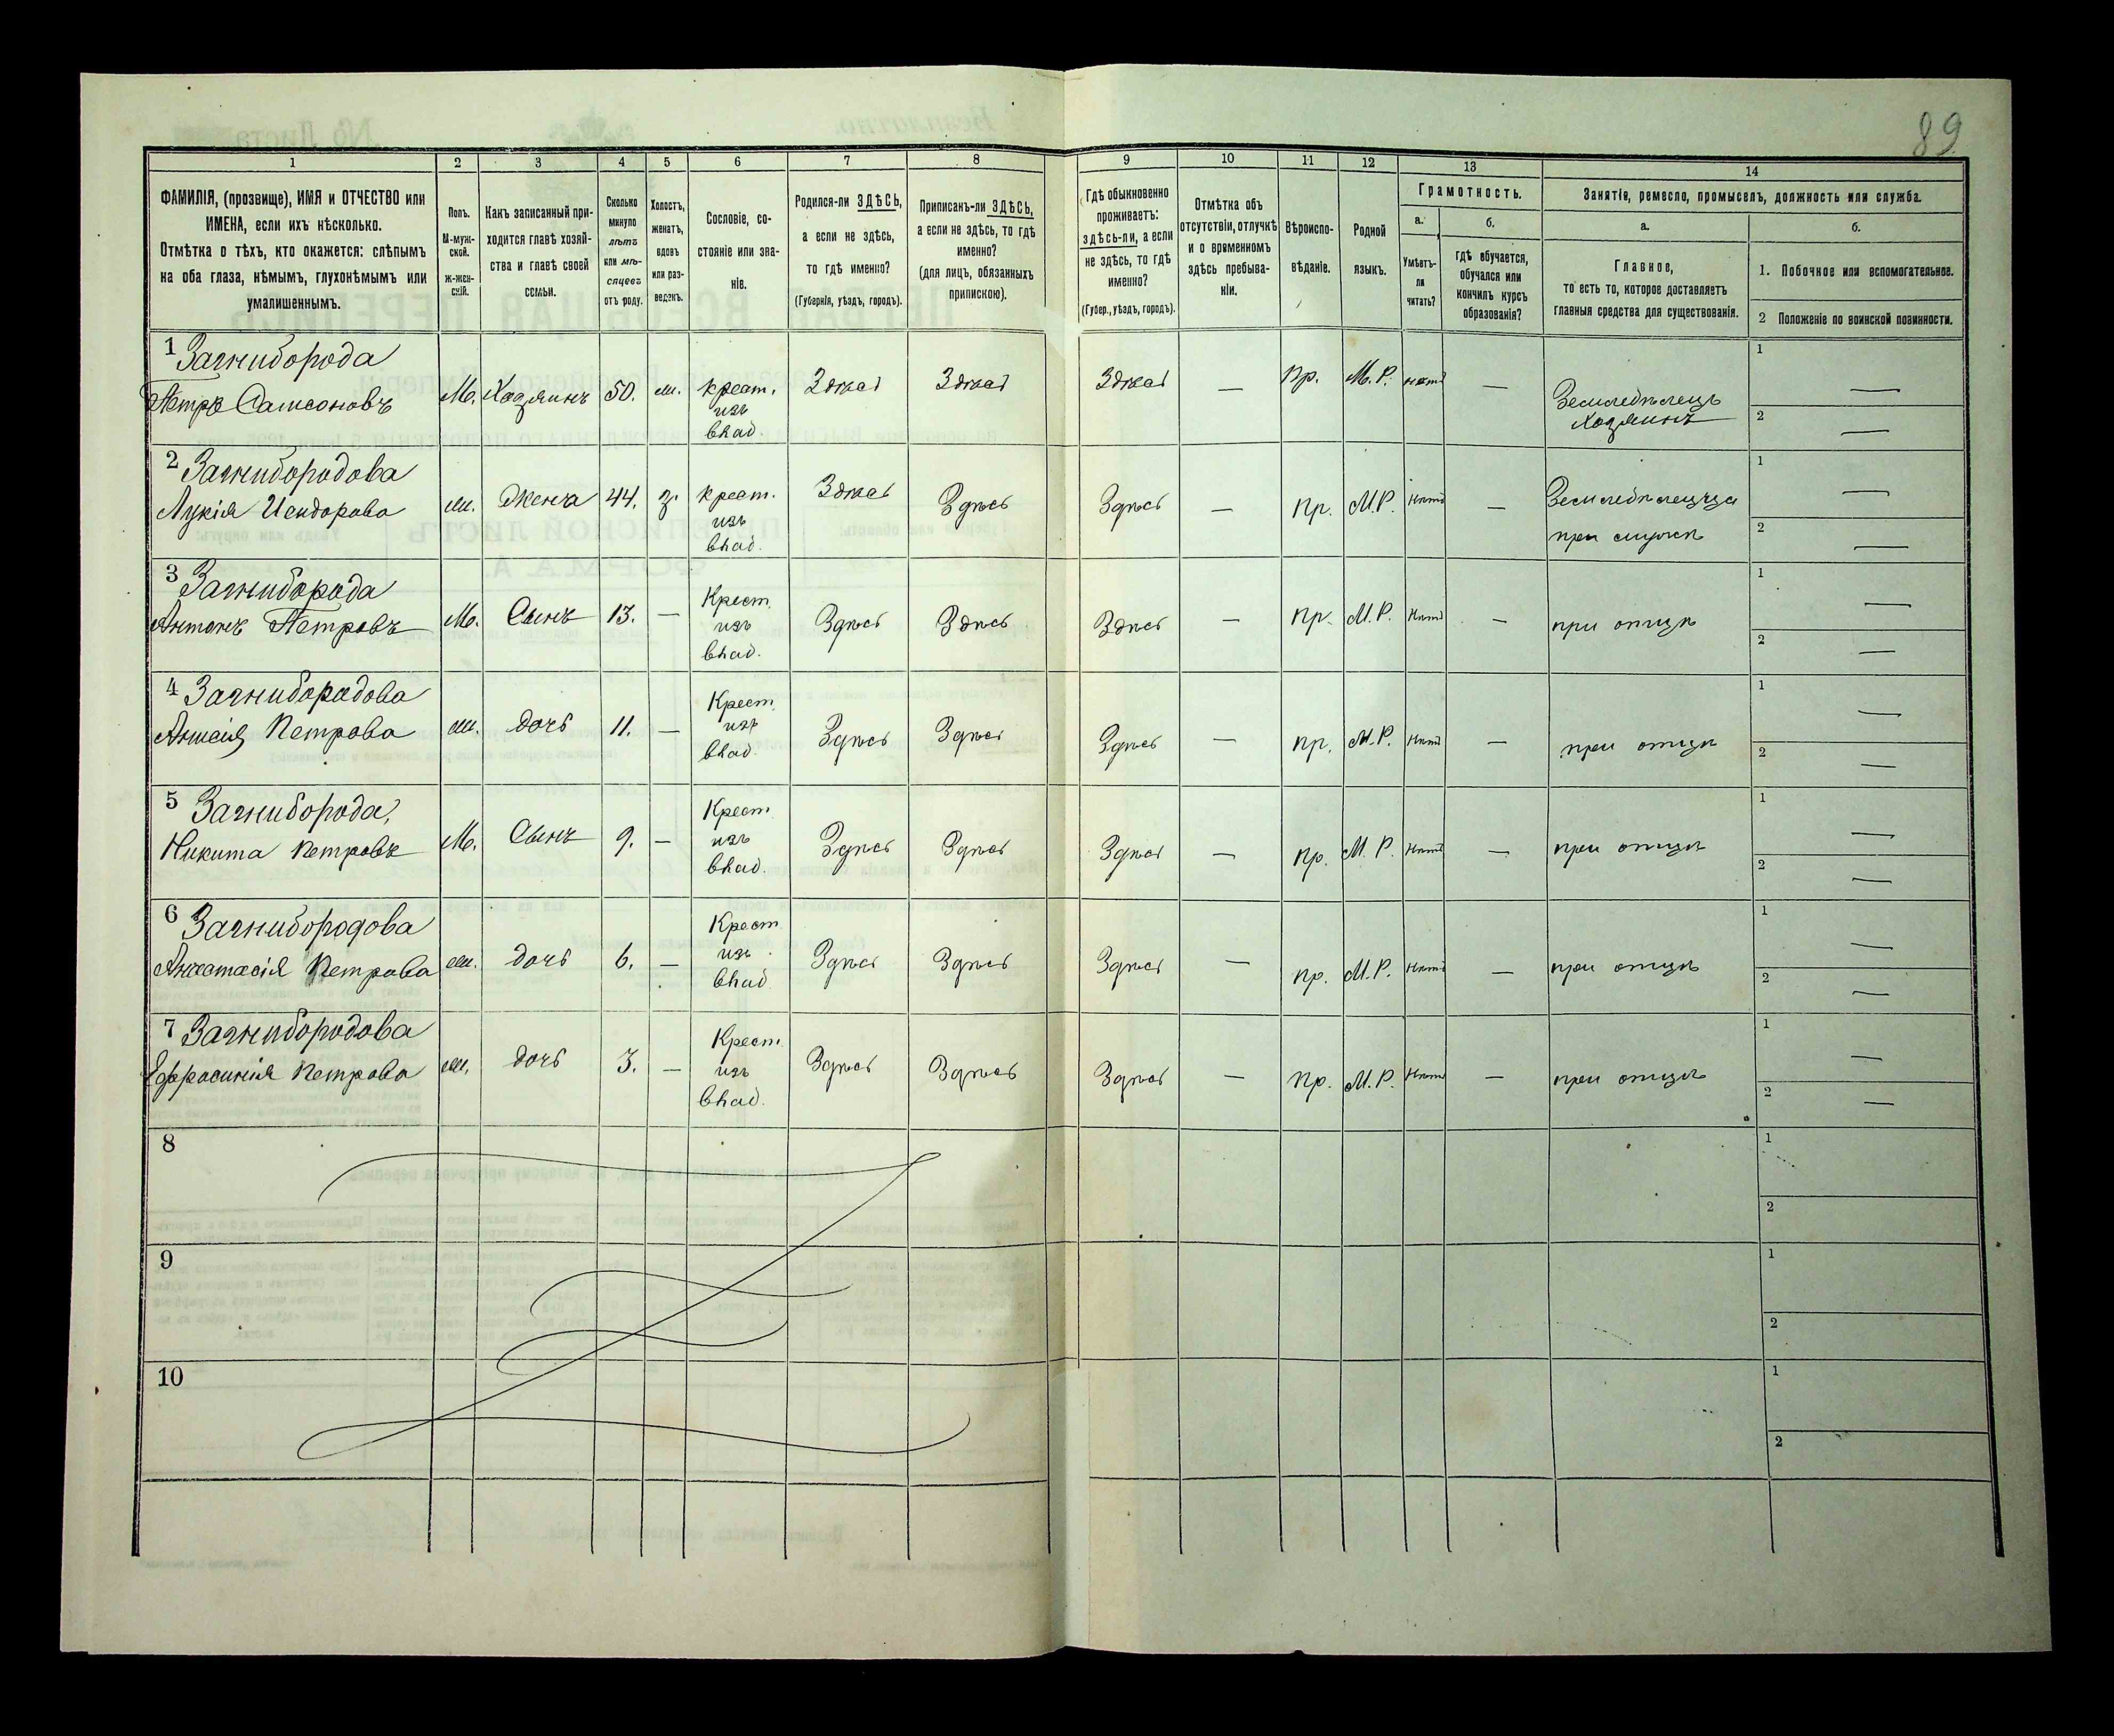 89
1 2 3 4 5 6 7 8 9 10 11 12 13 14
ФАМИЛІЯ, (прозвище), ИМЯ и ОТЧЕСТВО или
ИМЕНА, если ихъ нѣсколько.
Отмѣтка о тѣхъ, кто окажется: слѣпымъ
на оба глаза, нѣмымъ, глухонѣмымъ или
умалишеннымъ.
Полъ.
М-муж-
ской.
ж-жен-
скій.
Какъ записанный при-
ходится главѣ хозяй-
ства и главѣ своей
семьи.
Сколько
минуло
лѣтъ
или мѣ-
сяцевъ
отъ роду.
Холостъ,
женатъ,
вдовъ
или раз-
веденъ.
Сословіе, со-
стояніе или зва-
ніе.
Родился-ли ЗДѢСЬ,
а если не здѣсь,
то гдѣ именно?
(Губернія, уѣздъ, городъ).
Приписанъ-ли ЗДѢСЬ,
а если не здѣсь, то гдѣ
именно?
(для лицъ, обязанныхъ
припискою).
Гдѣ обыкновенно
проживаетъ:
здѣсь-ли, а если
не здѣсь, то гдѣ
именно?
(Губер., уѣздъ, городъ).
Отмѣтка объ
отсутствіи, отлучкѣ
и о временномъ
здѣсь пребыва-
ніи.
Вѣроиспо-
вѣданіе.
Родной
языкъ.
Грамотность.
а.
Умѣетъ-
ли
читать?
б.
гдѣ обучается,
обучался или
кончилъ курсъ
образованія?
Занятіе, ремесло, промыселъ, должность или служба.
а.
Главное,
то есть то, которое доставляетъ
главныя средства для существованія.
б.
1. Побочное или вспомогательное.
2 Положеніе по воинской повинности.
1 Загниборода
Петръ Самсоновъ М. Хозяинъ 50. ж. крест. Здѣсь Здѣсь Здѣсь — Пр. М.Р. нѣтъ — Земледѣлецъ 1 —
изъ
влад.
Хозяинъ 2 —
2 Загнибородова
Лукія Исидорова ж. Жена 44. З. крест. Здѣсь Здѣсь Здѣсь — пр. М.Р. нѣтъ — Земледѣлецъца 1 —
изъ
влад.
при мужѣ 2 —
3 Загниборода
Антонъ Петровъ М. Сынъ 13. — Крест. Здѣсь Здѣсь Здѣсь — пр. М.Р. Нѣтъ — при отцѣ 1 —
изъ
влад. 2 —
4 Загнибородова
Петрова ж. дочь 11. — Крест. Здѣсь Здѣсь Здѣсь — пр. М.Р. Нѣтъ — при отцѣ 1 —
изъ
влад. 2 —
5 Загниборода,
Никита Петровъ М. Сынъ 9. — Крест. Здѣсь Здѣсь Здѣсь — пр. М.Р. Нѣтъ — при отцѣ 1 —
изъ
влад. 2 —
6 Загнибородова
Анастасія Петрова ж. дочь 6. — Крест. Здѣсь Здѣсь Здѣсь — пр. М.Р. Нѣтъ — при отцѣ 1 —
изъ
влад. 2 —
7 Загнибородова
Ефросинія Петрова ж. дочь 3. — Крест. Здѣсь Здѣсь Здѣсь — пр. М.Р. Нѣтъ — при отцѣ 1 —
изъ
влад. 2 —
8 1
2
9 1
2
10 1
2